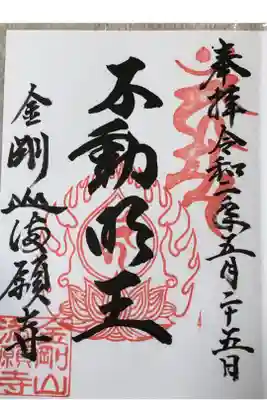 奉拝 令和二年五月二十五日
不動明王
金剛山満願寺
金剛山
満願寺